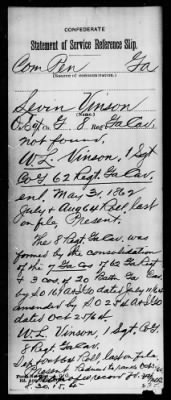 CONFEDERATE
Statement of Service Reference Slip.
Com Pen Ga
(Source of communication.)
Levin Vinson
(Name.)
Co. G 8 Reg. Ga Cav.
not found.
W. L. Vinson, 1 Sgt
Co G 62 Regt Ga Cav.
enl. May 3, 1862
July & Aug 64 Roll, last
on file, Present.
The 8 Regt. Ga Cav. was
formed by the consolidation
of the 7 Ga cos of 62 Ga Regt
& 3 cos. of 20 Batt'n Ga Cav
by S O 161 A & I G O dated July 11 64
amended by S O 254 A & I G O
dated Oct 27 64.
W. L. Vinson, 1 Sgt. Co G.
8 Regt. Ga Cav.
Roll, last on file,
Present.
record